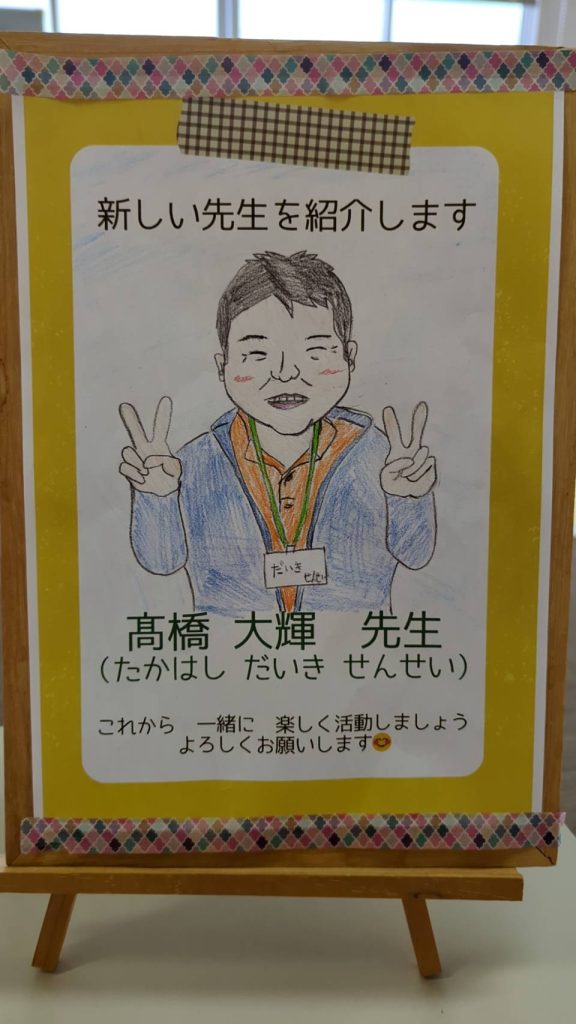 新しい先生を紹介します
だいき
せんせい
髙橋 大輝 先生
(たかはし だいき せんせい)
これから 一緒に 楽しく活動しましょう
よろしくお願いします😊